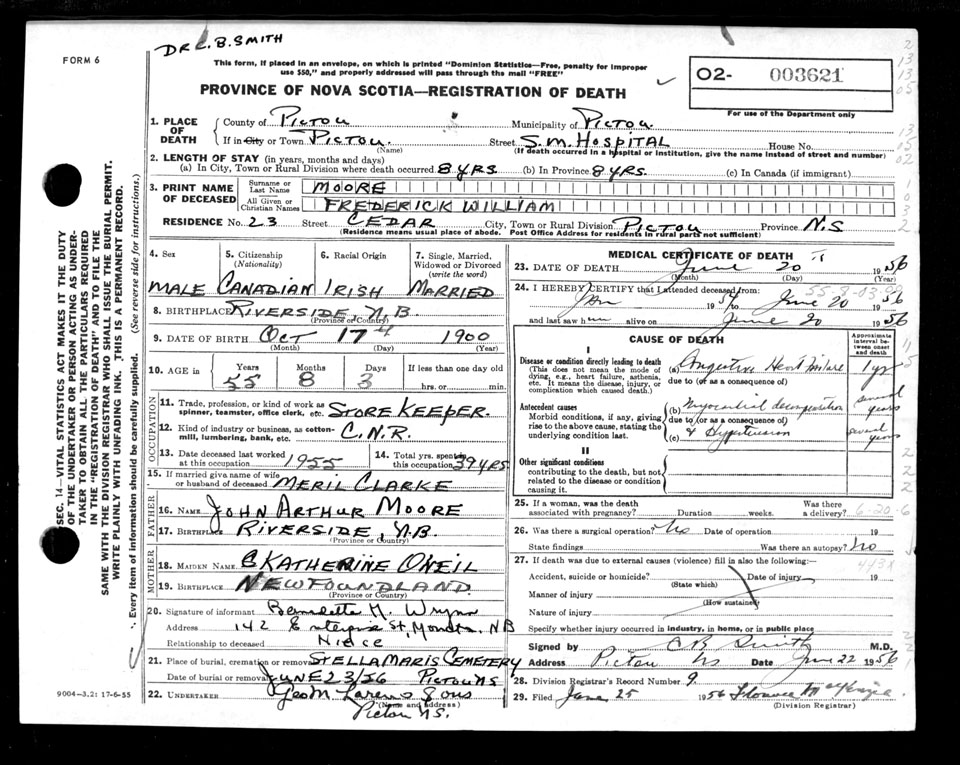 DR C. B. SMITH
FORM 6
This form, if placed in an envelope, on which is printed "Dominion Statistics—Free, penalty for improper
use $50," and properly addressed will pass through the mail "FREE"
PROVINCE OF NOVA SCOTIA—REGISTRATION OF DEATH
02- 003621
For use of the Department only
1. PLACE OF DEATH
County of PICTOU Municipality of PICTOU.
If in City or Town PICTOU. Street S.M. HOSPITAL House No.
(Name) (If death occurred in a hospital or institution, give the name instead of street and number)
2. LENGTH OF STAY (in years, months and days)
(a) In City, Town or Rural Division where death occurred 8 YRS. (b) In Province 8 YRS. (c) In Canada (if immigrant)
3. PRINT NAME OF DECEASED
Surname or Last Name MOORE
All Given or Christian Names FREDERICK WILLIAM
RESIDENCE No. 23 Street CEDAR City, Town or Rural Division PICTOU Province N.S
(Residence means usual place of abode. Post Office Address for residents in rural parts not sufficient)
4. Sex
MALE
5. Citizenship (Nationality)
CANADIAN
6. Racial Origin
IRISH
7. Single, Married, Widowed or Divorced (write the word)
MARRIED
8. BIRTHPLACE RIVERSIDE, N.B
(Province or Country)
9. DATE OF BIRTH OCT 17th 1900
(Month) (Day) (Year)
10. AGE in Years Months Days If less than one day old
55 8 3 hrs. or min.
OCCUPATION
11. Trade, profession, or kind of work as spinner, teamster, office clerk, etc. STORE KEEPER.
12. Kind of industry or business, as cotton-mill, lumbering, bank, etc. C.N.R.
13. Date deceased last worked at this occupation 1955 14. Total yrs. spent in this occupation 39 YRS
15. If married give name of wife or husband of deceased MERIL CLARKE
FATHER
16. NAME JOHN ARTHUR MOORE
17. BIRTHPLACE RIVERSIDE, N.B.
(Province or Country)
MOTHER
18. MAIDEN NAME KATHERINE O'NEIL
19. BIRTHPLACE NEWFOUNDLAND
(Province or Country)
20. Signature of informant Bernadette M. Wrynn
Address 142 St, NB
Relationship to deceased Niece
21. Place of burial, cremation or removal STELLA MARIS CEMETERY
Date of burial or removal JUNE 23/56 PICTOU NS
22. UNDERTAKER Geo M. Sons
(Name and address)
Pictou NS.
9004-3.2: 17-6-55
SEC. 14—VITAL STATISTICS ACT MAKES IT THE DUTY
OF THE UNDERTAKER OR PERSON ACTING AS UNDER-
TAKER TO OBTAIN ALL THE PARTICULARS REQUIRED
IN THE "REGISTRATION OF DEATH" AND TO FILE THE
SAME WITH THE DIVISION REGISTRAR WHO SHALL ISSUE THE BURIAL PERMIT.
WRITE PLAINLY WITH UNFADING INK. THIS IS A PERMANENT RECORD.
Every item of information should be carefully supplied. (See reverse side for instructions.)
MEDICAL CERTIFICATE OF DEATH
23. DATE OF DEATH June 20 1956
(Month) (Day) (Year)
24. I HEREBY CERTIFY that I attended deceased from:
Jan 1954 to June 20 1956
and last saw him alive on June 20 1956
CAUSE OF DEATH
Approximate interval between onset and death
I
Disease or condition directly leading to death
(This does not mean the mode of dying, e.g., heart failure, asthenia, etc. It means the disease, injury, or complication which caused death.)
(a) Congestive Heart Failure 1 yr
due to (or as a consequence of)
Antecedent causes
Morbid conditions, if any, giving rise to the above cause, stating the underlying condition last.
(b) Myocardial decompensation several years
due to (or as a consequence of)
(c) & Hypertension several years
II
Other significant conditions
contributing to the death, but not related to the disease or condition causing it.
25. If a woman, was the death associated with pregnancy? Duration weeks. Was there a delivery? 6-20-6
26. Was there a surgical operation? No Date of operation 19
State findings Was there an autopsy? No
27. If death was due to external causes (violence) fill in also the following:
443X
Accident, suicide or homicide? Date of injury 19
(State which)
Manner of injury
(How sustained)
Nature of injury
Specify whether injury occurred in industry, in home, or in public place
Signed by C B Smith M.D.
Address Pictou NS Date June 22 1956
28. Division Registrar's Record No. 9
29. Filed June 25 1956 Florence McKenzie
(Division Registrar)